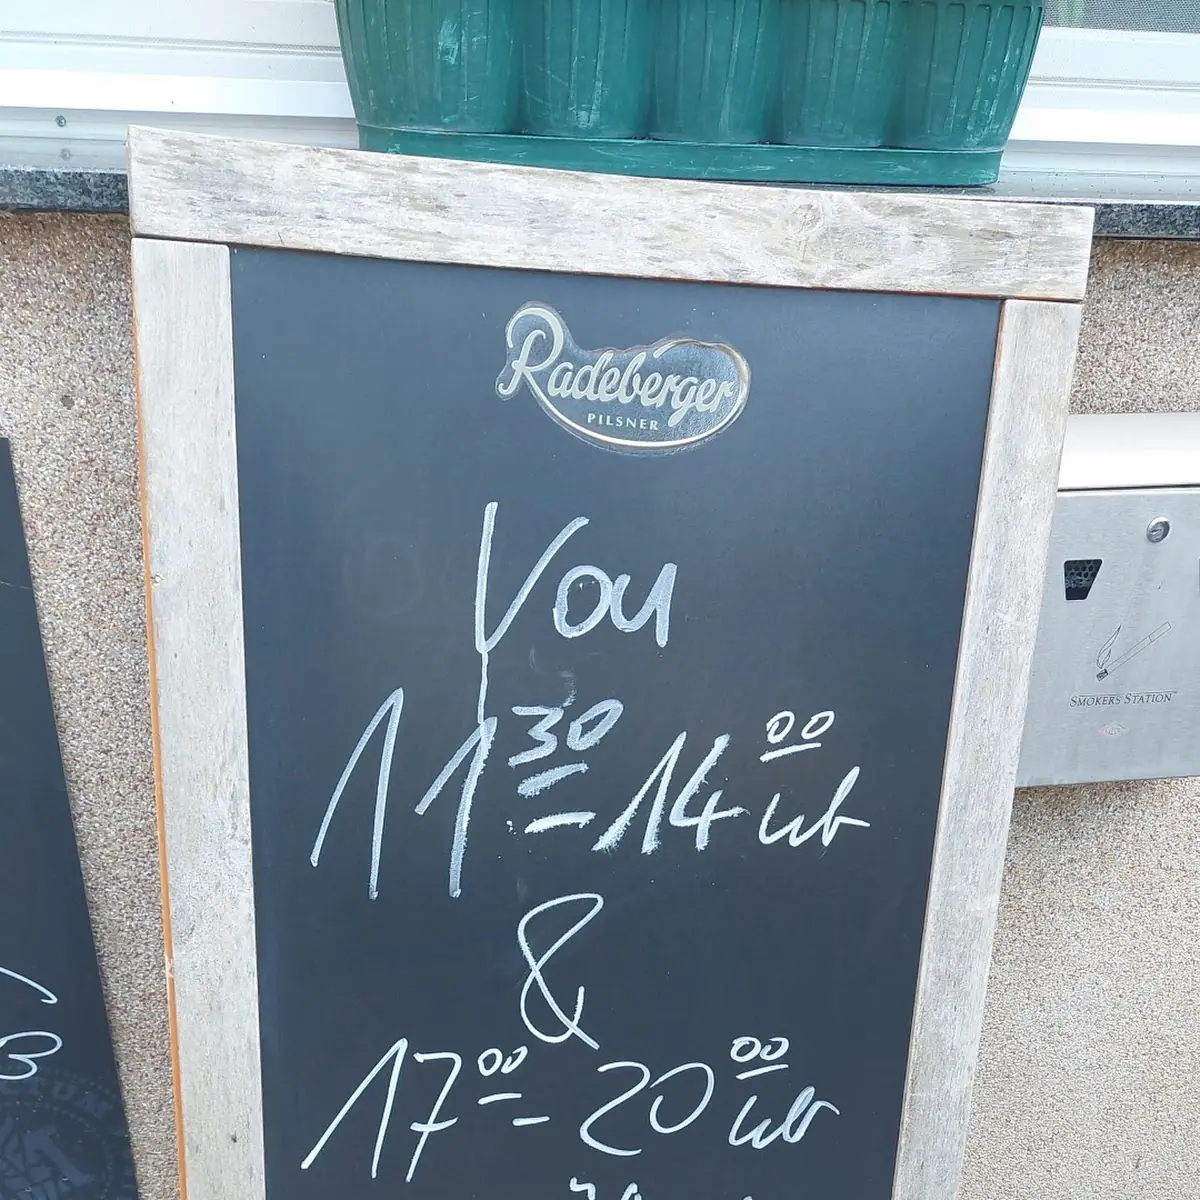 Radeberger
PILSNER
Von
11³⁰ - 14⁰⁰ Uhr
&
17⁰⁰ - 20⁰⁰ Uhr
SMOKERS STATION